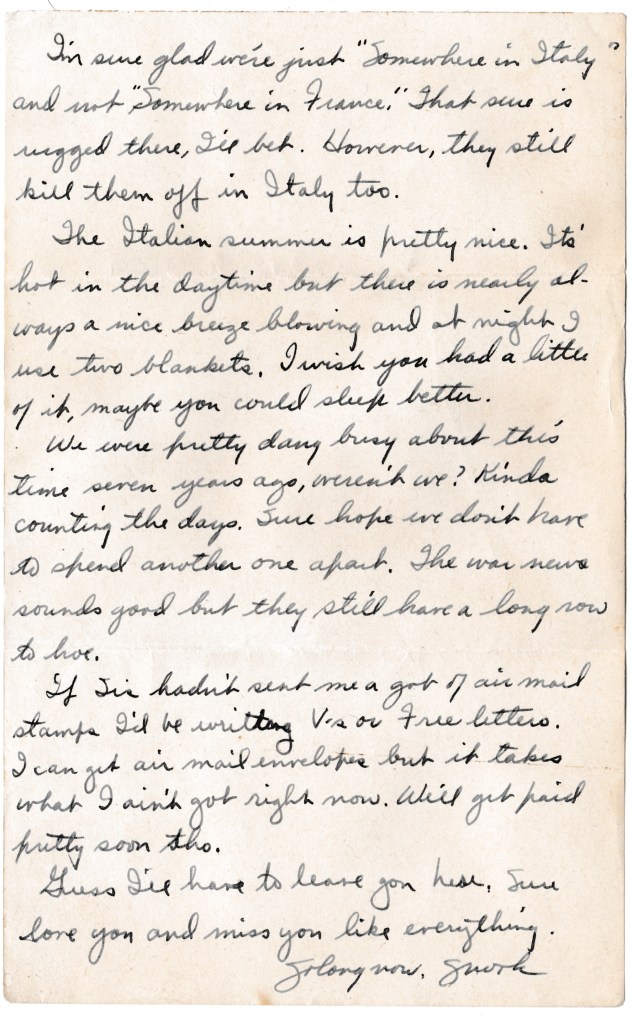 I'm sure glad we're just "Somewhere in Italy"
and not "Somewhere in France." That sure is
rugged there, I'll bet. However, they still
kill them off in Italy too.
The Italian summer is pretty nice. Its'
hot in the daytime but there is nearly al-
ways a nice breeze blowing and at night I
use two blankets. I wish you had a little
of it, maybe you could sleep better.
We were pretty dang busy about this
time seven years ago, weren't we? Kinda
counting the days. Sure hope we don't have
to spend another one apart. The war news
sounds good but they still have a long row
to hoe.
If Sis hadn't sent me a gob of air mail
stamps I'd be writing V-s or Free letters.
I can get air mail envelopes but it takes
what I ain't got right now. We'll get paid
pretty soon tho.
Guess I'll have to leave you here. Sure
love you and miss you like everything.
So long now.